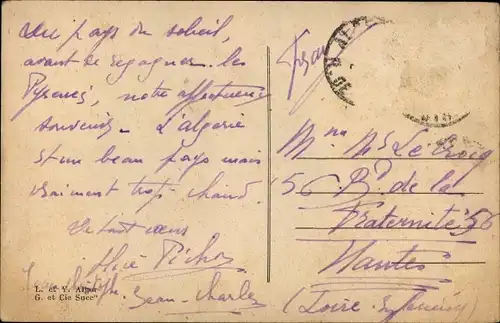 Au pays du soleil,
avant de regagner les
Pyrénées, notre affectueux
souvenir. L'algerie
est un beau pays mais
vraiment trop chaud.
De tout coeur
Alice Pichon
Jean-Charles
L. et Y. Alger
G. et Cie Succrs
Mme
56 Bd de la
Fraternité 56
Nantes
(Loire Inférieure)